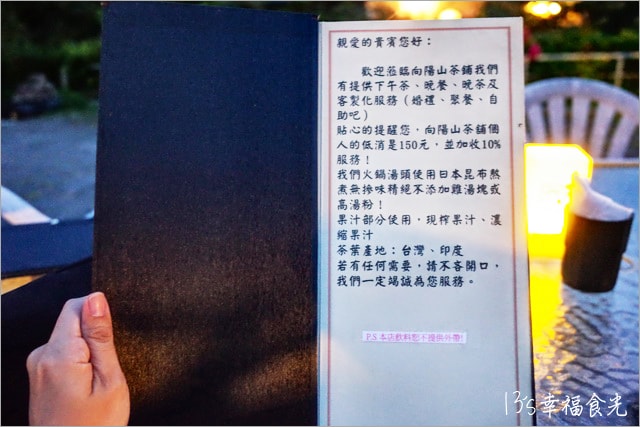 親愛的貴賓您好：
歡迎蒞臨向陽山茶鋪我們
有提供下午茶、晚餐、晚茶及
客製化服務（婚禮、聚餐、自
助吧）
貼心的提醒您，向陽山茶鋪個
人的低消是150元，並加收10%
服務！
我們火鍋湯頭使用日本昆布熬
煮無摻味精絕不添加雞湯塊或
高湯粉！
果汁部分使用，現榨果汁、濃
縮果汁
茶葉產地：台灣、印度
若有任何需要，請不吝開口，
我們一定竭誠為您服務。
P.S 本店飲料恕不提供外帶!
13's幸福食光